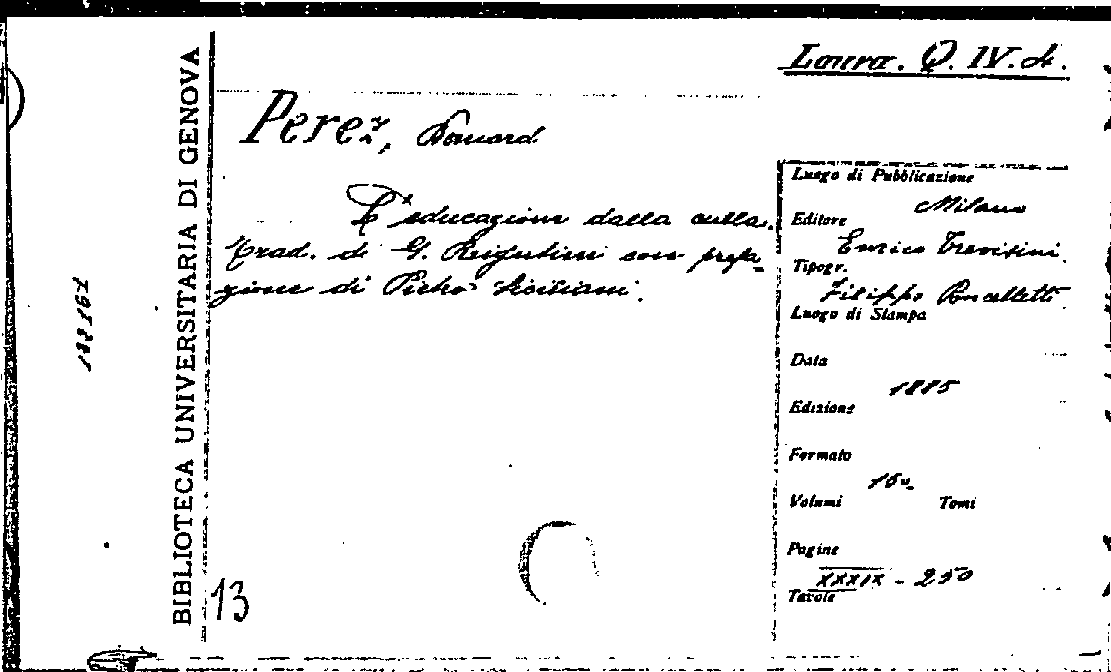 Laura. Q. IV. 4.
Perez, Bernard
L'educazione dalla culla.
Trad. di G. Rigutini con prefa-
zione di Pietro Siciliani.
BIBLIOTECA UNIVERSITARIA DI GENOVA
13
Luogo di Pubblicazione
Milano
Editore
Enrico Trevisini.
Tipogr.
Filippo Poncelletti
Luogo di Stampa
Data
1885
Edizione
Formato
16º
Volumi Tomi
Pagine
XXXIX - 250
Tavole